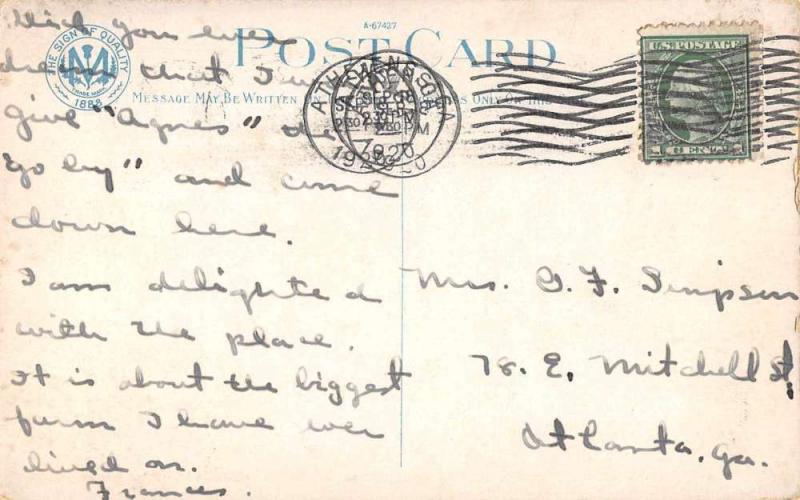 Did you ever
dream that I would
give "Agnes" the
"go by" and come
down here.
I am delighted
with the place.
It is about the biggest
farm I have ever
lived on.
Frances.
A-67427
POST CARD
THE SIGN OF QUALITY
TRADE MARK
1883
MESSAGE MAY BE WRITTEN ON
ONLY ON THIS
ATHENS GA
SEP
230 PM
1920
U.S. POSTAGE
Mrs. O. F. Simpson
78. E. Mitchell St.
Atlanta, Ga.